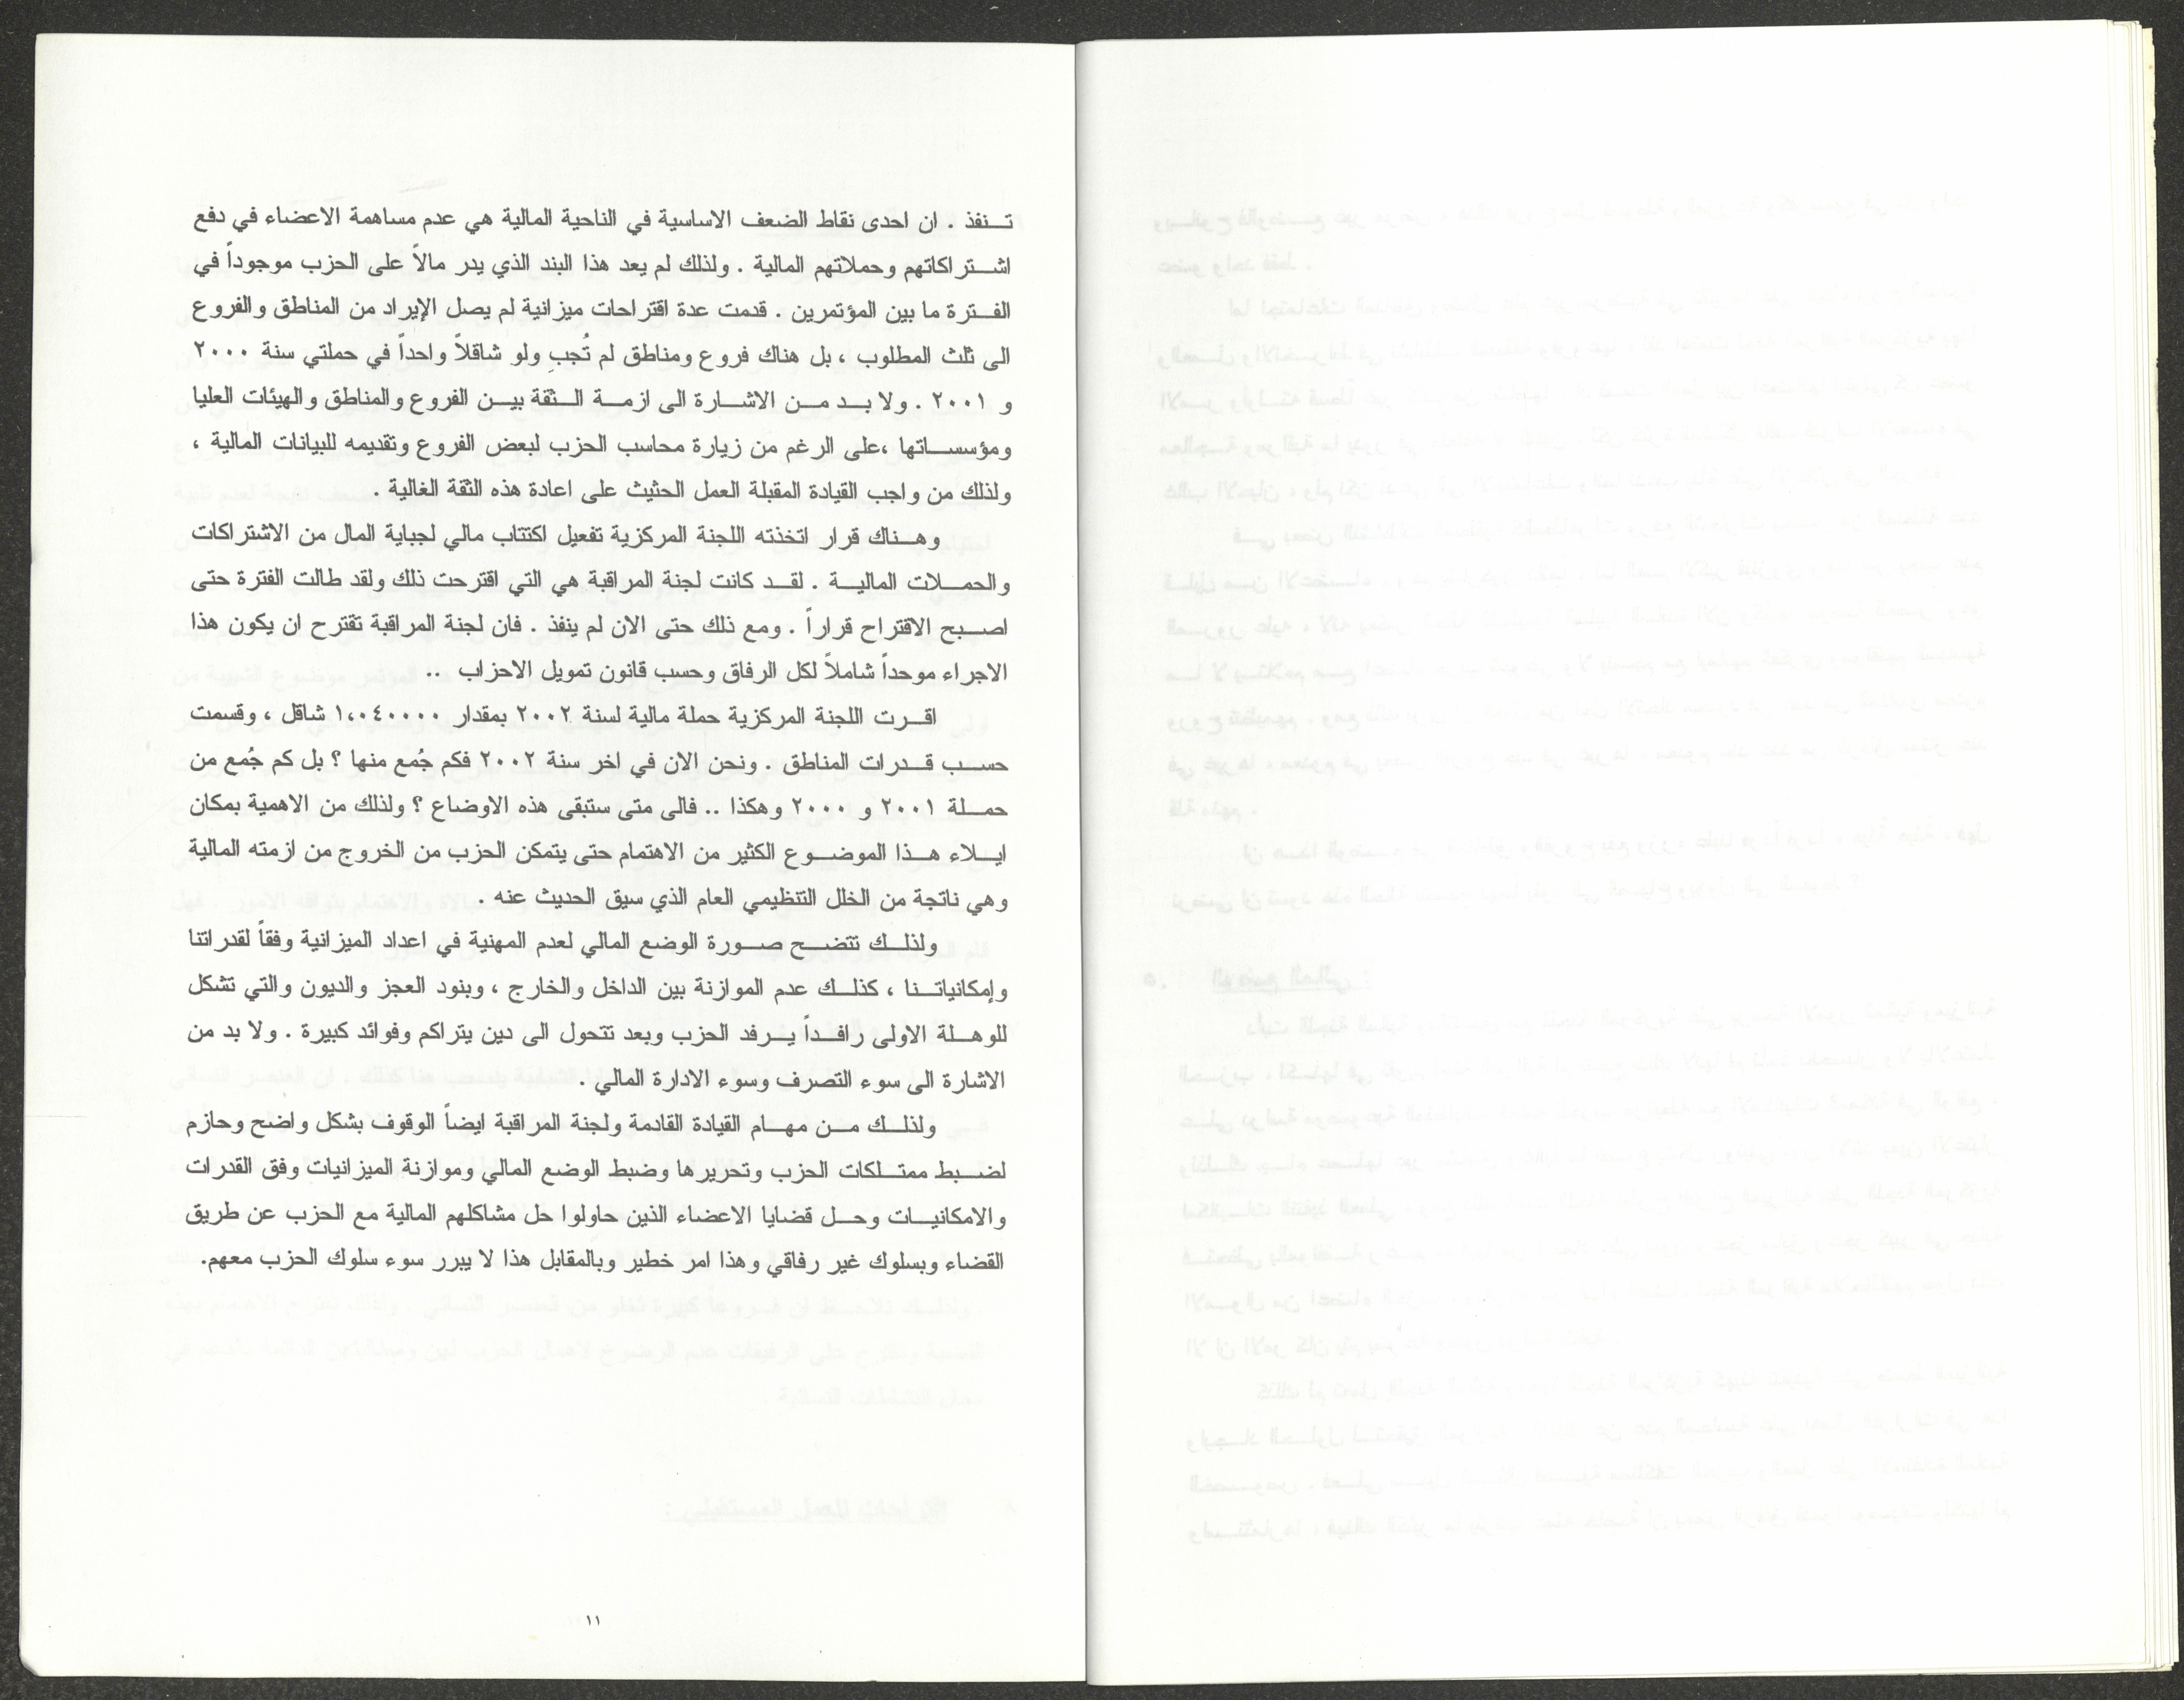 تـنفذ . ان احدى نقاط الضعف الاساسية في الناحية المالية هي عدم مساهمة الاعضاء في دفع
اشـتراكاتهم وحملاتهم المالية . ولذلك لم يعد هذا البند الذي يدر مالاً على الحزب موجوداً في
الفـترة ما بين المؤتمرين . قدمت عدة اقتراحات ميزانية لم يصل الإيراد من المناطق والفروع
الى ثلث المطلوب ، بل هناك فروع ومناطق لم تُجبِ ولو شاقلاً واحداً في حملتي سنة ٢٠٠٠
و ٢٠٠١ . ولا بـد مـن الاشـارة الى ازمـة الـثقة بيـن الفروع والمناطق والهيئات العليا
ومؤسسـاتها ،على الرغم من زيارة محاسب الحزب لبعض الفروع وتقديمه للبيانات المالية ،
ولذلك من واجب القيادة المقبلة العمل الحثيث على اعادة هذه الثقة الغالية .
وهـناك قرار اتخذته اللجنة المركزية تفعيل اكتتاب مالي لجباية المال من الاشتراكات
والحمـلات الماليـة . لقـد كانت لجنة المراقبة هي التي اقترحت ذلك ولقد طالت الفترة حتى
اصـبح الاقتراح قراراً . ومع ذلك حتى الان لم ينفذ . فان لجنة المراقبة تقترح ان يكون هذا
الاجراء موحداً شاملاً لكل الرفاق وحسب قانون تمويل الاحزاب ..
اقـرت اللجنة المركزية حملة مالية لسنة ٢٠٠٢ بمقدار ١،٠٤٠٠٠٠ شاقل ، وقسمت
حسـب قـدرات المناطق . ونحن الان في اخر سنة ٢٠٠٢ فكم جُمع منها ؟ بل كم جُمع من
حمـلة ٢٠٠١ و ٢٠٠٠ وهكذا .. فالى متى ستبقى هذه الاوضاع ؟ ولذلك من الاهمية بمكان
ايـلاء هـذا الموضـوع الكثير من الاهتمام حتى يتمكن الحزب من الخروج من ازمته المالية
وهي ناتجة من الخلل التنظيمي العام الذي سيق الحديث عنه .
ولذلـك تتضـح صـورة الوضع المالي لعدم المهنية في اعداد الميزانية وفقاً لقدراتنا
وإمكانياتـنا ، كذلـك عدم الموازنة بين الداخل والخارج ، وبنود العجز والديون والتي تشكل
للوهـلة الاولى رافـداً يـرفد الحزب وبعد تتحول الى دين يتراكم وفوائد كبيرة . ولا بد من
الاشارة الى سوء التصرف وسوء الادارة المالي .
ولذلـك مـن مهـام القيادة القادمة ولجنة المراقبة ايضاً الوقوف بشكل واضح وحازم
لضـبط ممتـلكات الحزب وتحريرها وضبط الوضع المالي وموازنة الميزانيات وفق القدرات
والامكانيـات وحـل قضايا الاعضاء الذين حاولوا حل مشاكلهم المالية مع الحزب عن طريق
القضاء وبسلوك غير رفاقي وهذا امر خطير وبالمقابل هذا لا يبرر سوء سلوك الحزب معهم.
١١